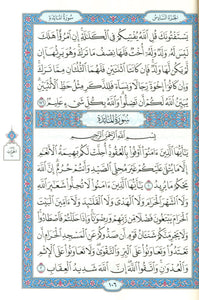 الجزء السادس
سورة المائدة
يَسْتَفْتُونَكَ قُلِ اللَّهُ يُفْتِيكُمْ فِي الْكَلَالَةِ إِنِ امْرُؤٌا هَلَكَ
لَيْسَ لَهُ وَلَدٌ وَلَهُ أُخْتٌ فَلَهَا نِصْفُ مَا تَرَكَ وَهُوَ يَرِثُهَا إِن
لَّمْ يَكُن لَّهَا وَلَدٌ فَإِن كَانَتَا اثْنَتَيْنِ فَلَهُمَا الثُّلُثَانِ مِمَّا تَرَكَ
وَإِن كَانُوا إِخْوَةً رِّجَالًا وَنِسَاءً فَلِلذَّكَرِ مِثْلُ حَظِّ الْأُنثَيَيْنِ
يُبَيِّنُ اللَّهُ لَكُمْ أَن تَضِلُّوا وَاللَّهُ بِكُلِّ شَيْءٍ عَلِيمٌ
سورة المائدة
بِسْمِ اللَّهِ الرَّحْمَٰنِ الرَّحِيمِ
يَا أَيُّهَا الَّذِينَ آمَنُوا أَوْفُوا بِالْعُقُودِ أُحِلَّتْ لَكُم بَهِيمَةُ الْأَنْعَامِ
إِلَّا مَا يُتْلَىٰ عَلَيْكُمْ غَيْرَ مُحِلِّي الصَّيْدِ وَأَنتُمْ حُرُمٌ إِنَّ اللَّهَ
يَحْكُمُ مَا يُرِيدُ ١ يَا أَيُّهَا الَّذِينَ آمَنُوا لَا تُحِلُّوا شَعَائِرَ اللَّهِ
وَلَا الشَّهْرَ الْحَرَامَ وَلَا الْهَدْيَ وَلَا الْقَلَائِدَ وَلَا آمِّينَ الْبَيْتَ
الْحَرَامَ يَبْتَغُونَ فَضْلًا مِّن رَّبِّهِمْ وَرِضْوَانًا وَإِذَا حَلَلْتُمْ فَاصْطَادُوا
وَلَا يَجْرِمَنَّكُمْ شَنَآنُ قَوْمٍ أَن صَدُّوكُمْ عَنِ الْمَسْجِدِ الْحَرَامِ أَن
تَعْتَدُوا وَتَعَاوَنُوا عَلَى الْبِرِّ وَالتَّقْوَىٰ وَلَا تَعَاوَنُوا عَلَى الْإِثْمِ
وَالْعُدْوَانِ وَاتَّقُوا اللَّهَ إِنَّ اللَّهَ شَدِيدُ الْعِقَابِ ٢
١٠٦